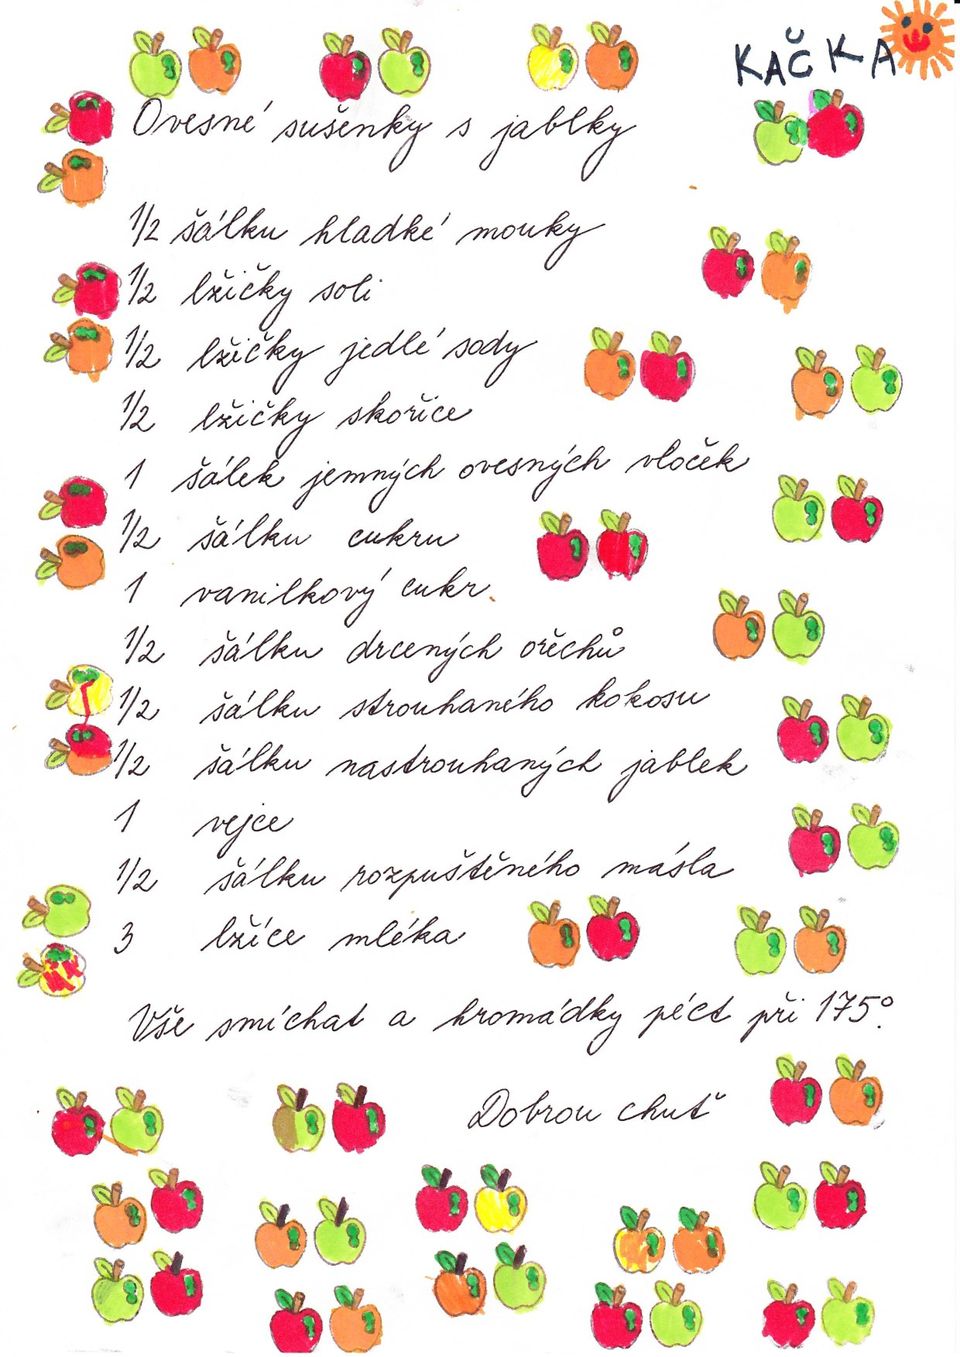 KAČKA
Ovesné sušenky s jablky
1/2 šálku hladké mouky
1/2 lžičky soli
1/2 lžičky jedlé sody
1/2 lžičky skořice
1 šálek jemných ovesných vloček
1/2 šálku cukru
1 vanilkový cukr
1/2 šálku drcených ořechů
1/2 šálku strouhaného kokosu
1/2 šálku nastrouhaných jablek
1 vejce
1/2 šálku rozpuštěného másla
3 lžíce mléka
Vše smíchat a hromádky péct při 175°.
Dobrou chuť